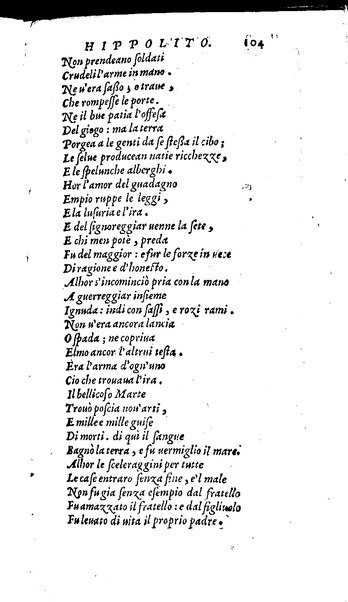 HIPPOLITO. 104
Non prendeano soldati
Crudeli l'arme in mano.
Ne u'era sasso, o traue,
Che rompesse le porte.
Ne il bue patia l'offesa
Del giogo: ma la terra
Porgea a le genti da se stessa il cibo;
Le selue producean natie ricchezze,
E le spelunche alberghi.
Hor l'amor del guadagno
Empio ruppe le leggi,
E la lusuria e l'ira.
E del signoreggiar uenne la sete,
E chi men potè, preda
Fu del maggior: e fur le forze in uece
Di ragione e d'honesto.
Alhor s'incominciò pria con la mano
A guerreggiar insieme
Ignuda: indi con sassi, e rozi rami.
Non u'era ancora lancia
O spada; ne copriua
Elmo ancor l'altrui testa.
Era l'arma d'ogn'uno
Cio che trouaua l'ira.
Il bellicoso Marte
Trouò poscia nou'arti,
E mille e mille guise
Di morti. di quì il sangue
Bagnò la terra, e fu uermiglio il mare.
Alhor le sceleraggini per tutte
Le case entraro senza fine, e'l male
Non fu gia senza esempio dal fratello
Fu amazzato il fratello: e dal figliuolo
Fu leuato di uita il proprio padre.